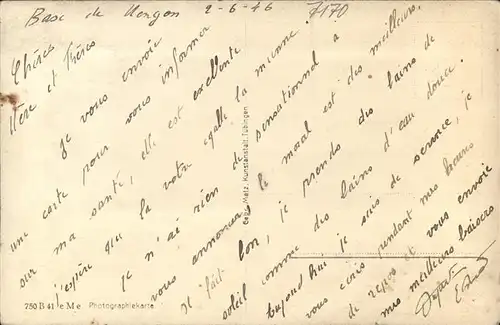 Base de Mengen 2-6-46 7170
Chers
Mère et Frères
Je vous envoie
une carte pour vous informer
sur ma santé, elle est excellente
j'espère que la votre egalle la mienne.
Je n'ai rien de sensationnel à
vous annoncer le moral est des meilleurs.
Il fait bon, je prends des bains de
soleil comme des bains d'eau douce.
Aujourd'hui je suis de service, je
vous écris pendant mes heures
de repos et vous envoie
mes meilleurs baisers
Gebr. Metz, Kunstanstalt, Tübingen
750 B 41 e M e Photographiekarte